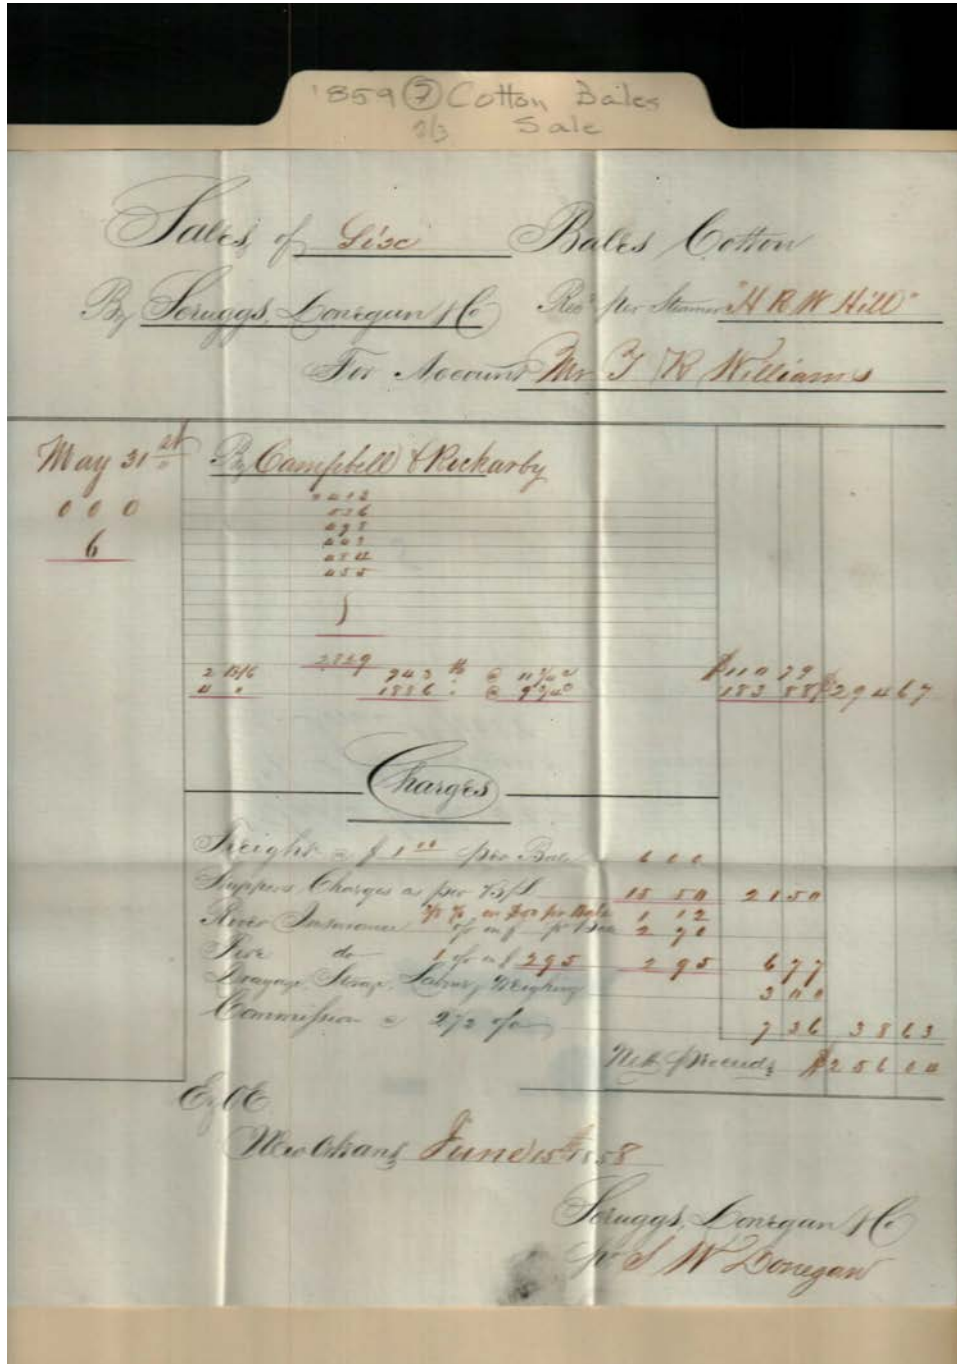 1859 (7) Cotton Bales
Sale
Sales, of Six Bales Cotton
By Scruggs, Donegan & Co Recd per Steamer "H R W Hill"
For Account Mr T R Williams
May 31st By Campbell & Rickarby
000
6
412
536
443
454
455
2829
2 Bls 943 lb @ 11 3/4c $110 79
4 " 1886 " @ 9 3/4c 183 88 $294 67
Charges
Freight @ $1 00 per Bale 6 00
Shippers Charges as per B/L 15 50 21 50
River Insurance on $50 per Bale 1 12
2 70
Fire do 1 % on $ 295 2 95 6 77
Drayage, Labor, Weighing 3 00
Commission @ 2 1/2 % 7 36 38 63
Net proceeds $256 04
E & OE
New Orleans, June 15th 1858
Scruggs, Donegan & Co
pr S W Donegan